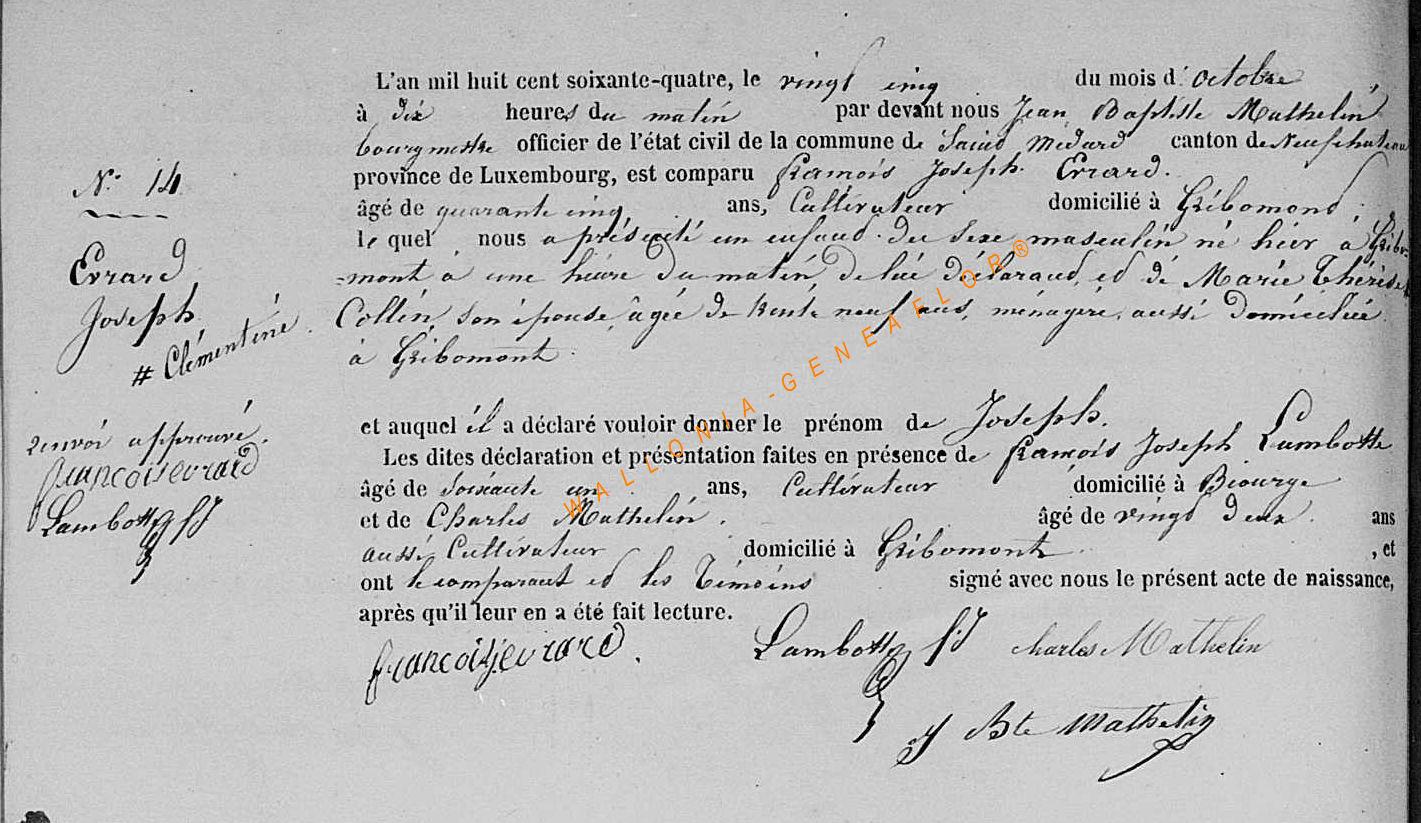 N° 14
Evrard
Joseph
# Clémentine.
renvoi approuvé.
françoisjevrard
Lambotte fJ
L'an mil huit cent soixante-quatre, le vingt cinq du mois d'octobre
à dix heures du matin par devant nous Jean Baptiste Mathelin
bourgmestre officier de l'état civil de la commune de Saint Médard canton de Neufchateau
province de Luxembourg, est comparu françois Joseph Evrard.
âgé de quarante cinq ans, Cultivateur domicilié à Gribomont,
le quel nous a présenté un enfant du sexe masculin né hier à Gribo-
=mont à une heure du matin de lui déclarant et de Marie Thérèse #
Collin, son épouse, âgée de trente neuf ans, ménagère, aussi domiciliée
à Gribomont.
et auquel il a déclaré vouloir donner le prénom de Joseph.
Les dites déclaration et présentation faites en présence de françois Joseph Lambotte
âgé de soixante un ans, Cultivateur domicilié à Biourge
et de Charles Mathelin. âgé de vingt deux. ans
aussi Cultivateur domicilié à Gribomont , et
ont le comparant et les témoins signé avec nous le présent acte de naissance,
après qu'il leur en a été fait lecture.
françoisjevrard. Lambotte fJ charles Mathelin
J Bte Mathelin
WALLONIA-GENEAFLOR®